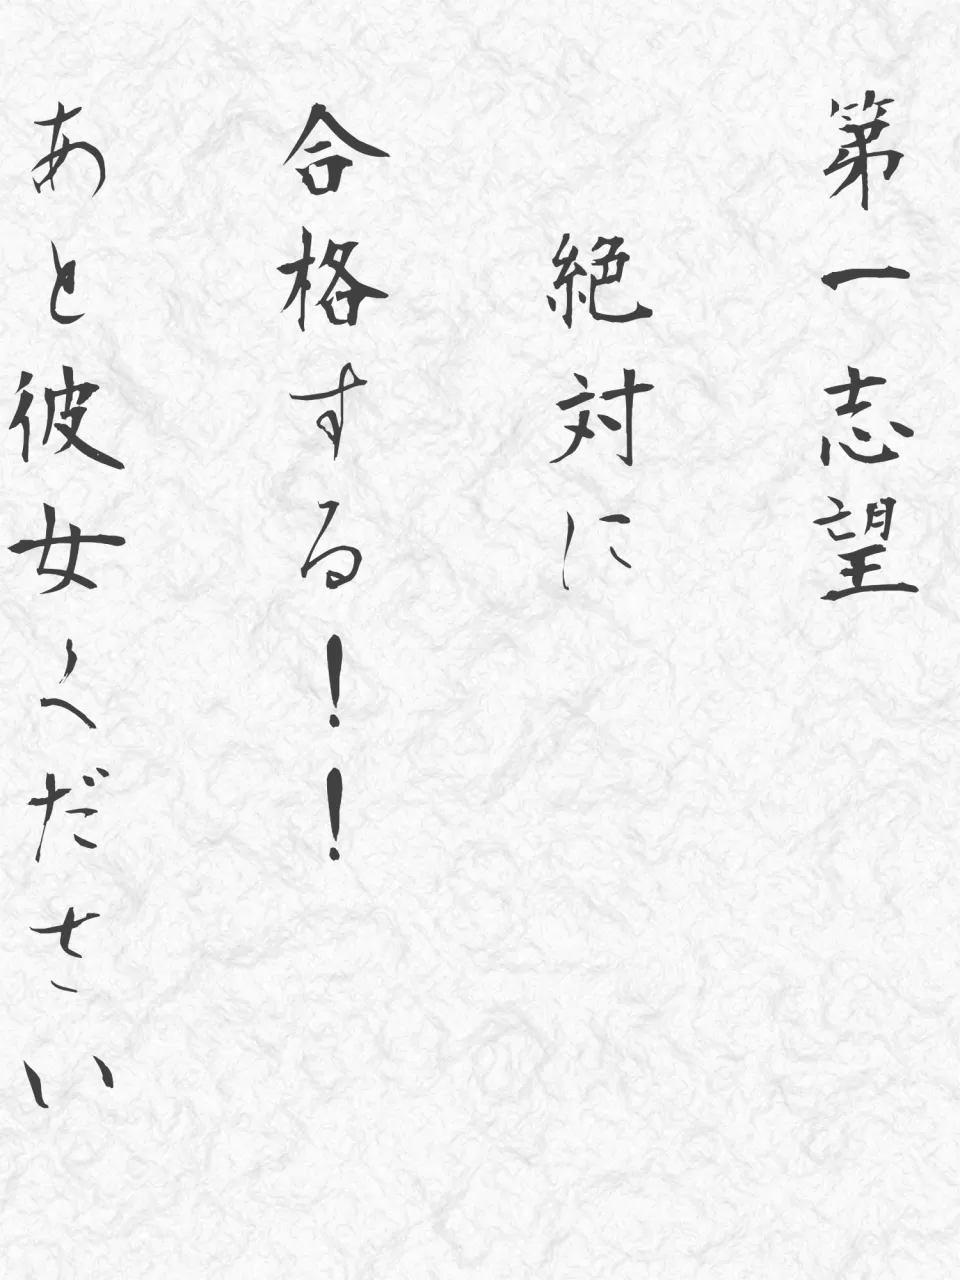 第一志望
絶対に
合格する！！
あと彼女ください